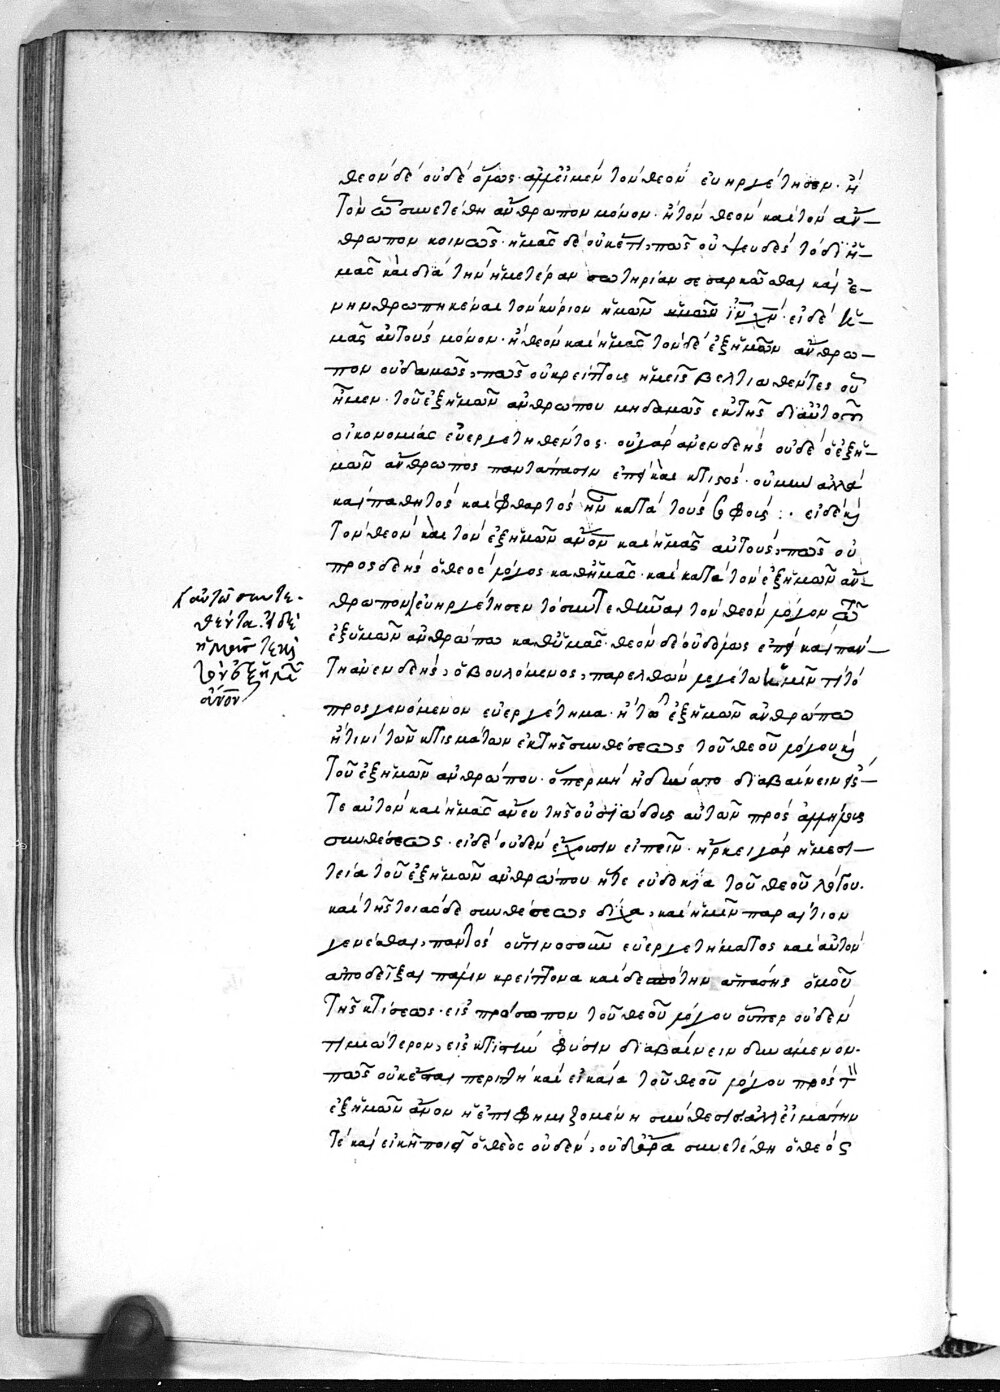 θεὸν δὲ οὐδὲ ὅλως. ἀλλ' εἰ μὲν τὸν θεὸν εὐηργέτησεν. ἢ
τὸν ᾧ συνετέθη ἄνθρωπον μόνον. ἢ τὸν θεὸν καὶ τὸν ἄν-
θρωπον κοινῶς. ἡμᾶς δὲ οὐκέτι, πῶς οὐ ψευδὲς τὸ δι' ἡ-
μᾶς καὶ διὰ τὴν ἡμετέραν σωτηρίαν σεσαρκῶσθαι καὶ ἐ-
νηνθρωπηκέναι τὸν κύριον ἡμῶν ἡμῶν ἰν χν. εἰ δὲ ἡ-
μᾶς αὐτοὺς μόνον. ἢ θεὸν καὶ ἡμᾶς τὸν δὲ ἐξ ἡμῶν ἄνθρω-
πον οὐδαμῶς, πῶς οὐ κρείττους ἡμεῖς βελτιωθέντες οὗ
ἦμεν. τοῦ ἐξ ἡμῶν ἀνθρώπου μηδαμῶς ἐκ τῆς δι' αὐτοῦ
οἰκονομίας εὐεργετηθέντος. οὐ γὰρ ἀνενδεὴς οὐδὲ ὁ ἐξ ἡ-
μῶν ἄνθρωπος παντάπασιν ἐπεὶ καὶ κτιστός. οὐ μὴν ἀλλὰ
καὶ παθητὸς καὶ φθαρτὸς ἦν κατὰ τοὺς σοφούς :. εἰ δὲ καὶ
τὸν θεὸν καὶ τὸν ἐξ ἡμῶν ἄνον καὶ ἡμᾶς αὐτούς, πῶς οὐ
προσδεὴς ὁ θεὸς λόγος καθ' ἡμᾶς. καὶ κατὰ τὸν ἐξ ἡμῶν ἄν-
θρωπον εὐηργέτησεν τὸ συντεθῆναι τὸν θεὸν λόγον τῷ
ἐξ ἡμῶν ἀνθρώπῳ καθ' ἡμᾶς. θεὸν δὲ οὐδ' ὅλως ἐπεὶ καὶ πάν-
τη ἀνενδεής, ὁ βουλόμενος, παρελθὼν λεγέτω ἡμῖν τί τὸ
προσγενόμενον εὐεργέτημα. ἢ τῷ ἐξ ἡμῶν ἀνθρώπῳ
ἤ τινι τῶν κτισμάτων ἐκ τῆς συνθέσεως τοῦ θεοῦ λόγου καὶ
τοῦ ἐξ ἡμῶν ἀνθρώπου. ὅπερ μὴ ἠδύνατο διαβαίνειν εἴ-
τε αὐτὸν καὶ ἡμᾶς ἄνευ τῆς οὐσιώδους αὐτῶν πρὸς ἀλλήλους
συνθέσεως. εἰ δὲ οὐδὲν ἔχουσιν εἰπεῖν. ἤρκει γὰρ ἡ μεσι-
τεία τοῦ ἐξ ἡμῶν ἀνθρώπου ἥτε εὐδοκία τοῦ θεοῦ λόγου.
καὶ τῆς τοιᾶσδε συνθέσεως δίχα, καὶ ἡμῖν παραίτιον
γενέσθαι, παντὸς οὑτινοσοῦν εὐεργετήματος καὶ αὐτὸν
ἀποδεῖξαι πάλιν κρείττονα καὶ δεσπότην ἁπάσης ὁμοῦ
τῆς κτίσεως. εἰς πρόσωπον τοῦ θεοῦ λόγου οὗπερ οὐδὲν
τιμιώτερον, εἰς κτιστὴν φύσιν διαβαίνειν δυνάμενον.
πῶς οὐκ ἔσται περιττὴ καὶ εἰκαία τοῦ θεοῦ λόγου πρὸς τὸν
ἐξ ἡμῶν ἄνον ἡ ἐπιφημιζομένη σύνθεσις. ἀλλ' εἰ μάτην
τὲ καὶ εἰκῇ ποιεῖ ὁ θεὸς οὐδέν, οὐδ' ἄρα συνετέθη ὁ θεὸς
καὶ αὐτῷ συντε-
θέντα. εἰ δὲ
ἡμᾶς τε καὶ
τὸν ἐξ ἡμῶν
ἄνον